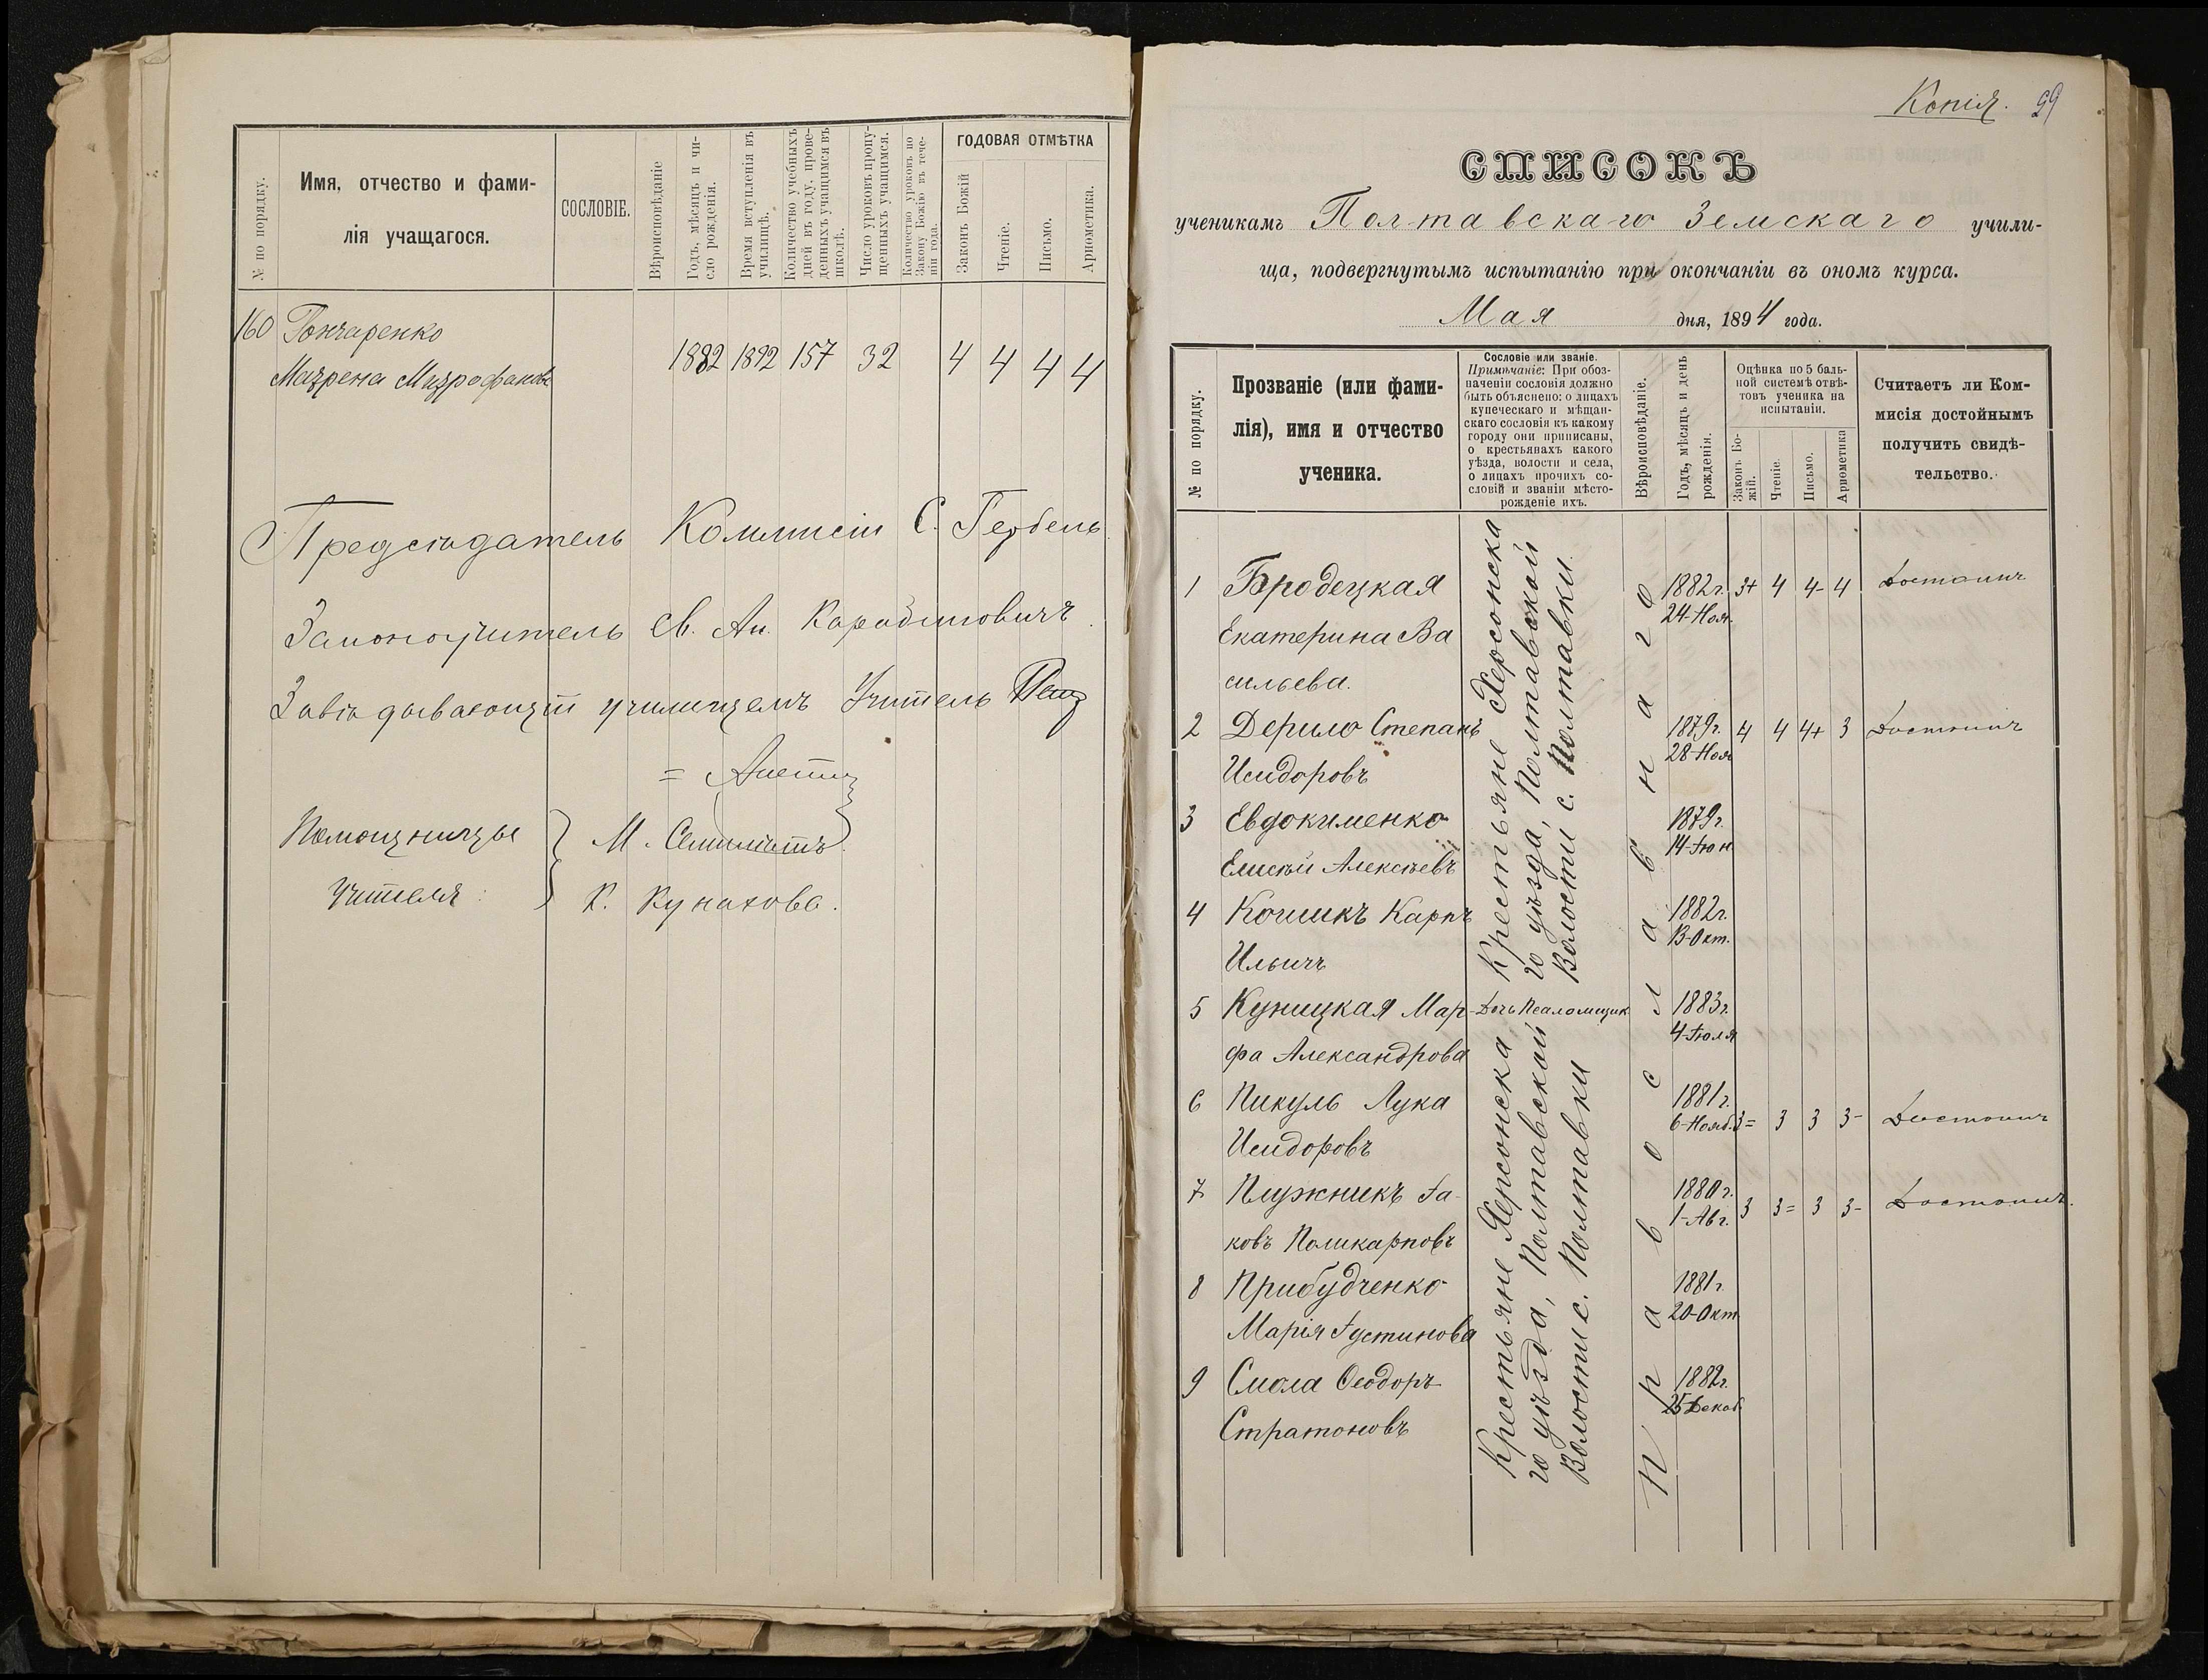 № по порядку.
Имя, отчество и фами-
лія учащагося.
СОСЛОВІЕ.
Вѣроисповѣданіе
Годъ, мѣсяцъ и чи-
сло рожденія.
Время вступленія въ
училищѣ.
Количество учебныхъ
дней въ году, прове-
денныхъ учащимся въ
школѣ.
Число уроковъ пропу-
щенныхъ учащимся.
Количество уроковъ по
Закону Божію въ тече-
ніи года.
ГОДОВАЯ ОТМѢТКА
Законъ Божій
Чтеніе.
Письмо.
Ариѳметика.
160 Гончаренко
Матрена Митрофанова 1882 1892 157 32 4 4 4 4
Предсѣдатель Коммисіи С. Гербель
Законоучитель Св. Ан.
Завѣдывающій училищемъ Учитель
Помощницы
Учителя:
М.
К. Кунахова.
Копія. 99
СПИСОКЪ
ученикамъ Полтавскаго Земскаго учили-
ща, подвергнутымъ испытанію при окончаніи въ ономъ курса.
Мая дня, 1894 года.
№ по порядку.
Прозваніе (или фами-
лія), имя и отчество
ученика.
Сословіе или званіе.
Примѣчаніе: При обоз-
наченіи сословія должно
быть объяснено: о лицахъ
купеческаго и мѣщан-
скаго сословія къ какому
городу они приписаны,
о крестьянахъ какого
уѣзда, волости и села,
о лицахъ прочихъ со-
словій и званіи мѣсто-
рожденіе ихъ.
Вѣроисповѣданіе.
Годъ, мѣсяцъ и день
рожденія.
Оцѣнка по 5 баль-
ной системѣ отвѣ-
товъ ученика на
испытаніи.
Законъ Бо-
жій.
Чтеніе.
Письмо.
Ариѳметика
Считаетъ ли Ком-
мисія достойнымъ
получить свидѣ-
тельство.
Крестьяне Херсонска
го уѣзда, Полтавской
Волости с. Полтавки.
Православнаго
1 Бродецкая 1882г. 3+ 4 4- 4 Достоинъ
Екатерина Ва 24-Ноя.
сильева.
2 Дерило Степанъ 1879г. 4 4 4+ 3 Достоинъ
Исидоровъ 28-Ноя
3 Евдокименко 1879г.
Елисѣй Алексѣевъ 14-Іюн
4 Кошикъ Карпъ 1882г.
Ильичъ 13-Окт.
5 Куницкая Мар- Дочь Псаломщик 1883г.
фа Александрова 4-Іюля
Крестьяне Херсонска
го уѣзда, Полтавской
Волости с. Полтавки
6 Пикуль Лука 1881г.
6-Нояб. 3= 3 3 3- Достоинъ
Исидоровъ
7 Плужникъ Іа- 1880г.
1-Авг. 3 3= 3 3- Достоинъ.
ковъ Поликарповъ
8 Прибудченко 1881г.
Марія Іустинова 20-Окт
9 Смола Ѳеодоръ 1882г.
Стратоновъ 25 Декаб.